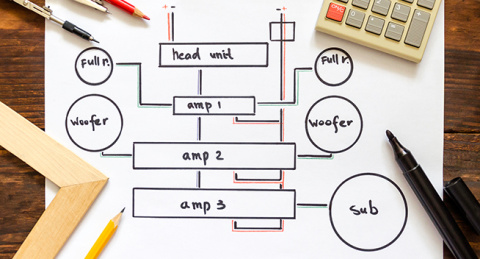 + -
- +
head unit
Full r.
Full r.
amp 1
Woofer
Woofer
amp 2
amp 3
Sub